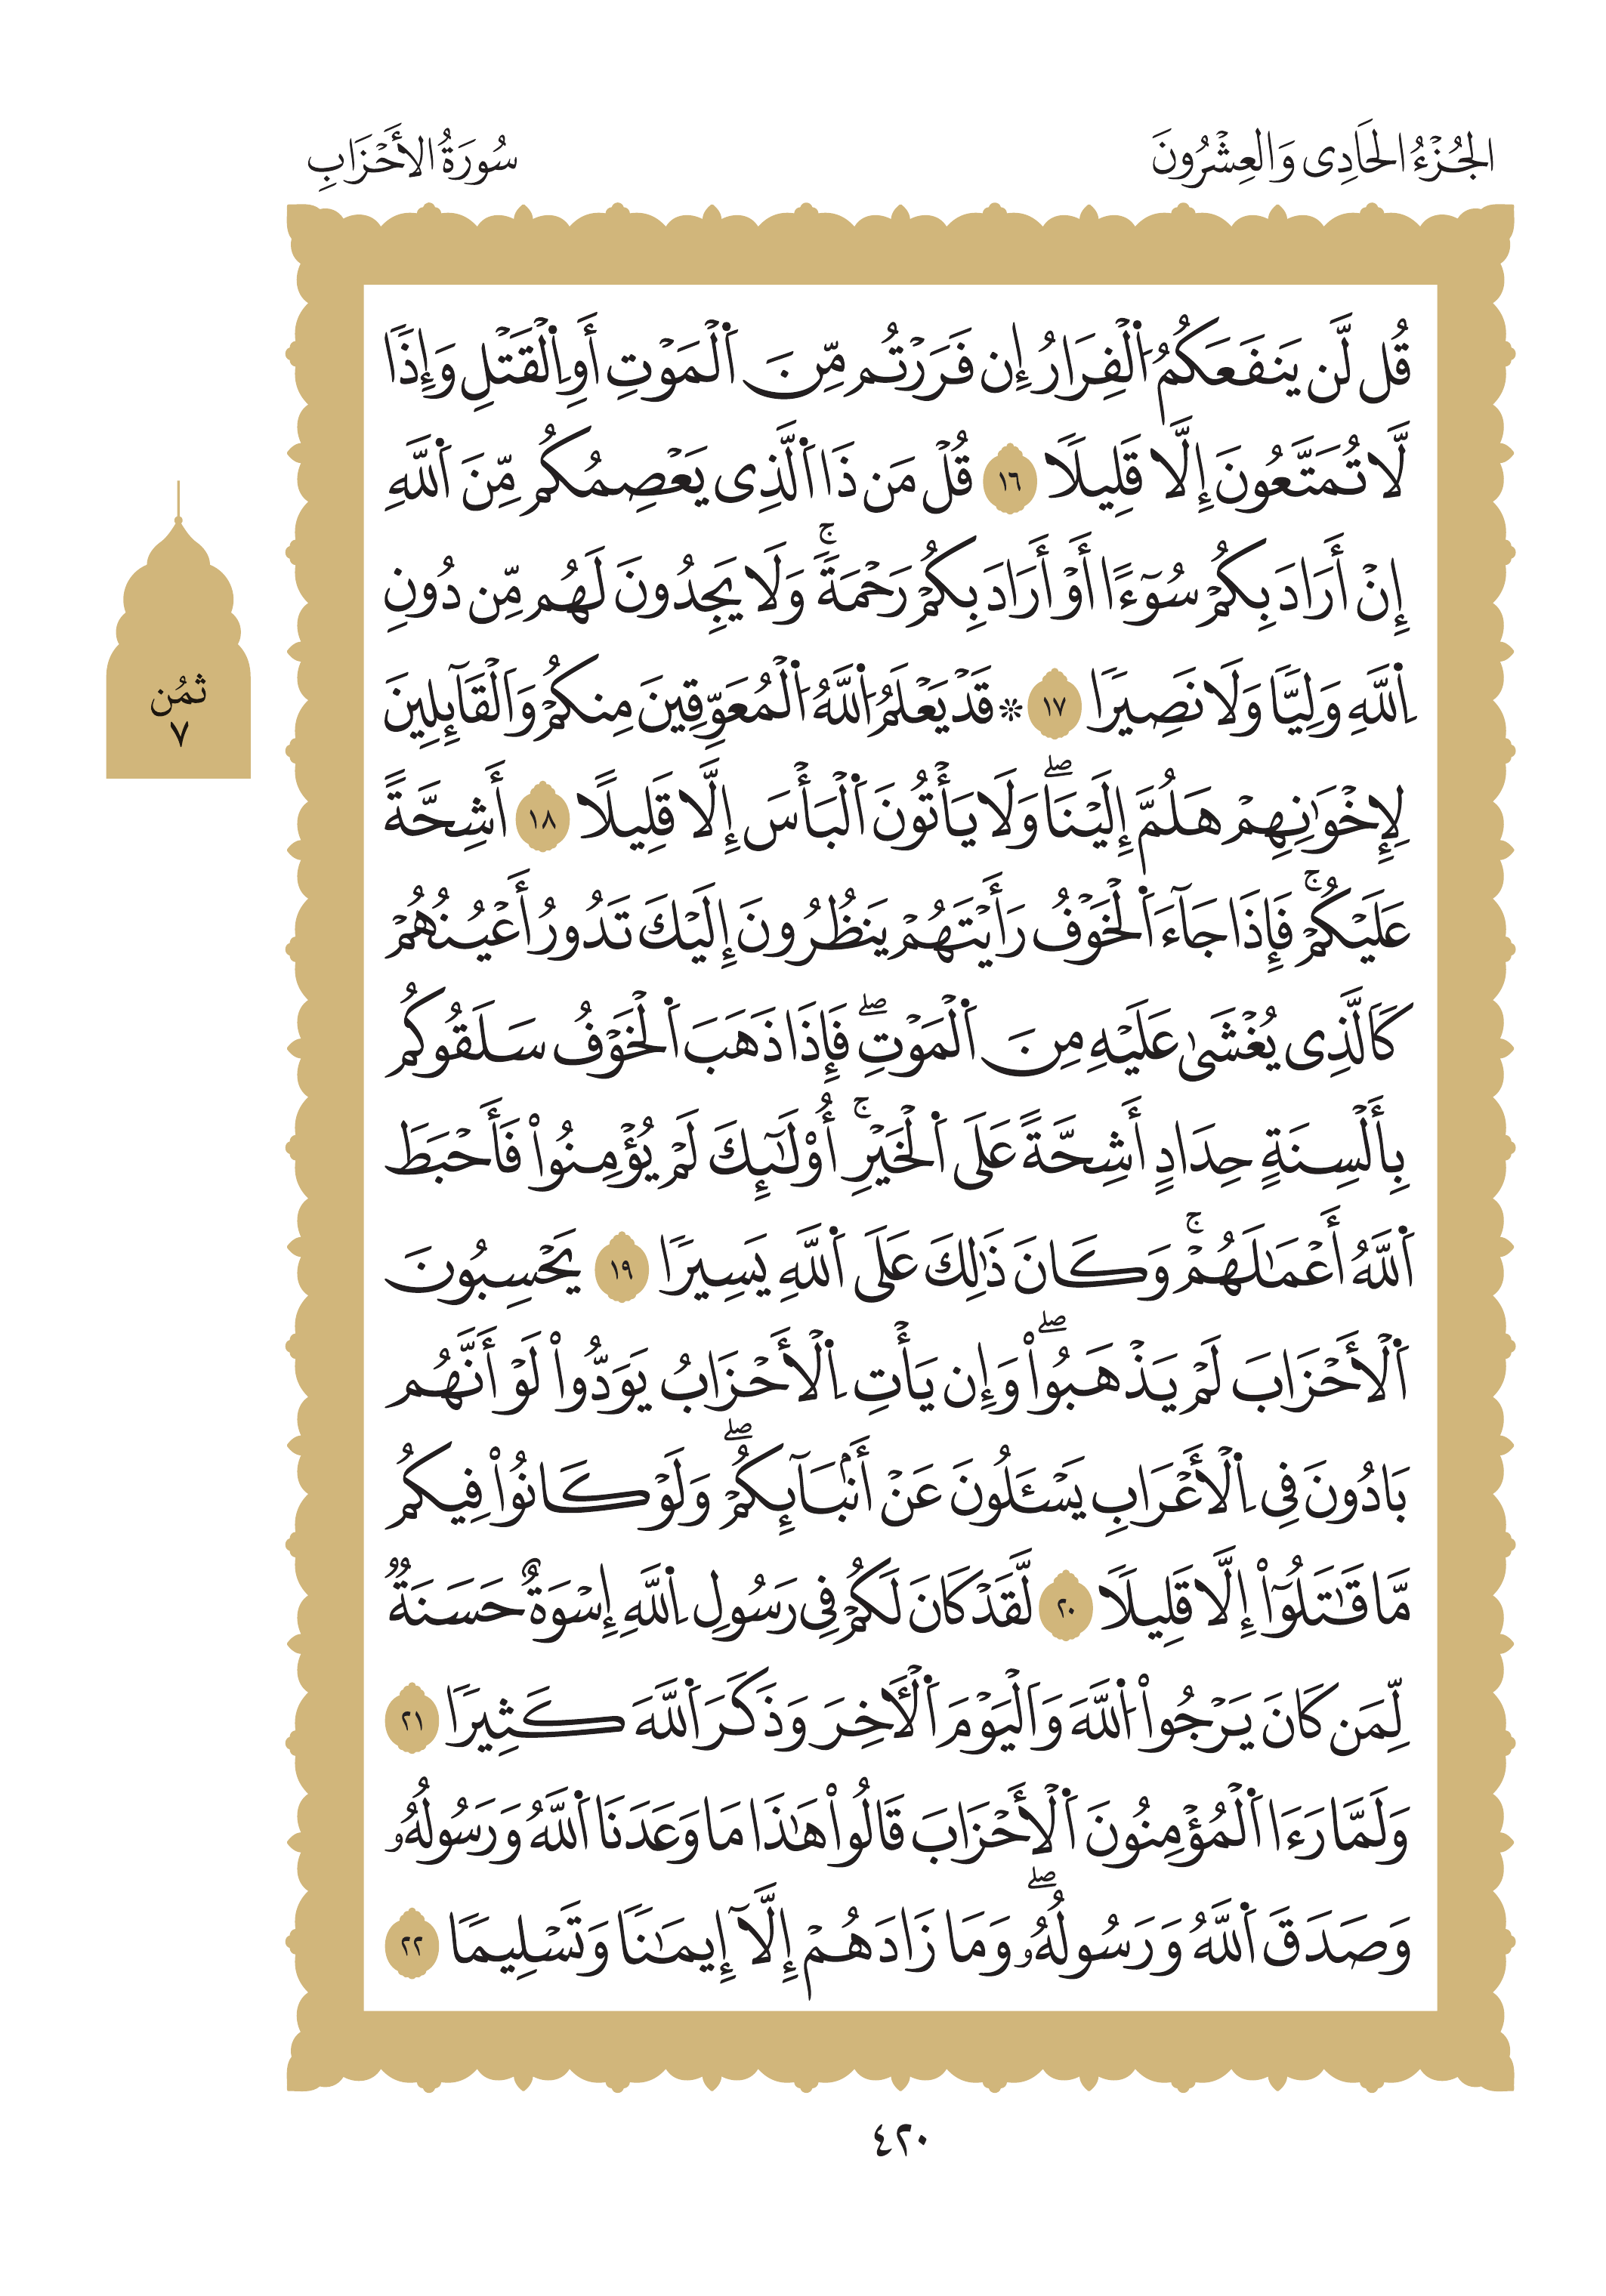 الجُزْءُ الحَادِى وَالعِشْرُونَ
سُورَةُ الأَحْزَابِ
قُل لَّن يَنفَعَكُمُ اَ۬لْفِرَارُ إِن فَرَرْتُم مِّنَ اَ۬لْمَوْتِ أَوِ اِ۬لْقَتْلِ وَإِذًا
لَّا تُمَتَّعُونَ إِلَّا قَلِيلًا ١٦ قُلْ مَن ذَا اَ۬لَّذِى يَعْصِمُكُم مِّنَ اَ۬للَّهِ
إِنْ أَرَادَ بِكُمْ سُوٓءًا أَوْ أَرَادَ بِكُمْ رَحْمَةًۚ وَلَا يَجِدُونَ لَهُم مِّن دُونِ
اِ۬للَّهِ وَلِيًّا وَلَا نَصِيرًا ١٧ ۞ قَد يَّعْلَمُ اُ۬للَّهُ اُ۬لْمُعَوِّقِينَ مِنكُمْ وَالْقَآئِلِينَ
لِإِخْوَٰنِهِمْ هَلُمَّ إِلَيْنَاۖ وَلَا يَأْتُونَ اَ۬لْبَأْسَ إِلَّا قَلِيلًا ١٨ أَشِحَّةً
عَلَيْكُمْۚ فَإِذَا جَآءَ اَ۬لْخَوْفُ رَأَيْتَهُمْ يَنظُرُونَ إِلَيْكَ تَدُورُ أَعْيُنُهُمْ
كَالَّذِى يُغْشَىٰ عَلَيْهِ مِنَ اَ۬لْمَوْتِۖ فَإِذَا ذَهَبَ اَ۬لْخَوْفُ سَلَقُوكُم
بِأَلْسِنَةٍ حِدَادٍ أَشِحَّةً عَلَى اَ۬لْخَيْرِۚ أُوْلَٰٓئِكَ لَمْ يُؤْمِنُواْ فَأَحْبَطَ
اَ۬للَّهُ أَعْمَٰلَهُمْۚ وَكَانَ ذَٰلِكَ عَلَى اَ۬للَّهِ يَسِيرًا ١٩ يَحْسِبُونَ
اَ۬لْأَحْزَابَ لَمْ يَذْهَبُواْۖ وَإِن يَأْتِ اِ۬لْأَحْزَابُ يَوَدُّواْ لَوْ أَنَّهُم
بَادُونَ فِى اِ۬لْأَعْرَابِ يَسْـَٔلُونَ عَنْ أَنۢبَآئِكُمْۖ وَلَوْ كَانُواْ فِيكُم
مَّا قَٰتَلُوٓاْ إِلَّا قَلِيلًا ٢٠ لَّقَدْ كَانَ لَكُمْ فِى رَسُولِ اِ۬للَّهِ إِسْوَةٌ حَسَنَةٌ
لِّمَن كَانَ يَرْجُواْ اُ۬للَّهَ وَالْيَوْمَ اَ۬لْأٓخِرَ وَذَكَرَ اَ۬للَّهَ كَثِيرًا ٢١
وَلَمَّا رَءَا اَ۬لْمُؤْمِنُونَ اَ۬لْأَحْزَابَ قَالُواْ هَٰذَا مَا وَعَدَنَا اَ۬للَّهُ وَرَسُولُهُۥ
وَصَدَقَ اَ۬للَّهُ وَرَسُولُهُۥۖ وَمَا زَادَهُمْ إِلَّآ إِيمَٰنًا وَتَسْلِيمًا ٢٢
ثمُن
٧
٤٢٠